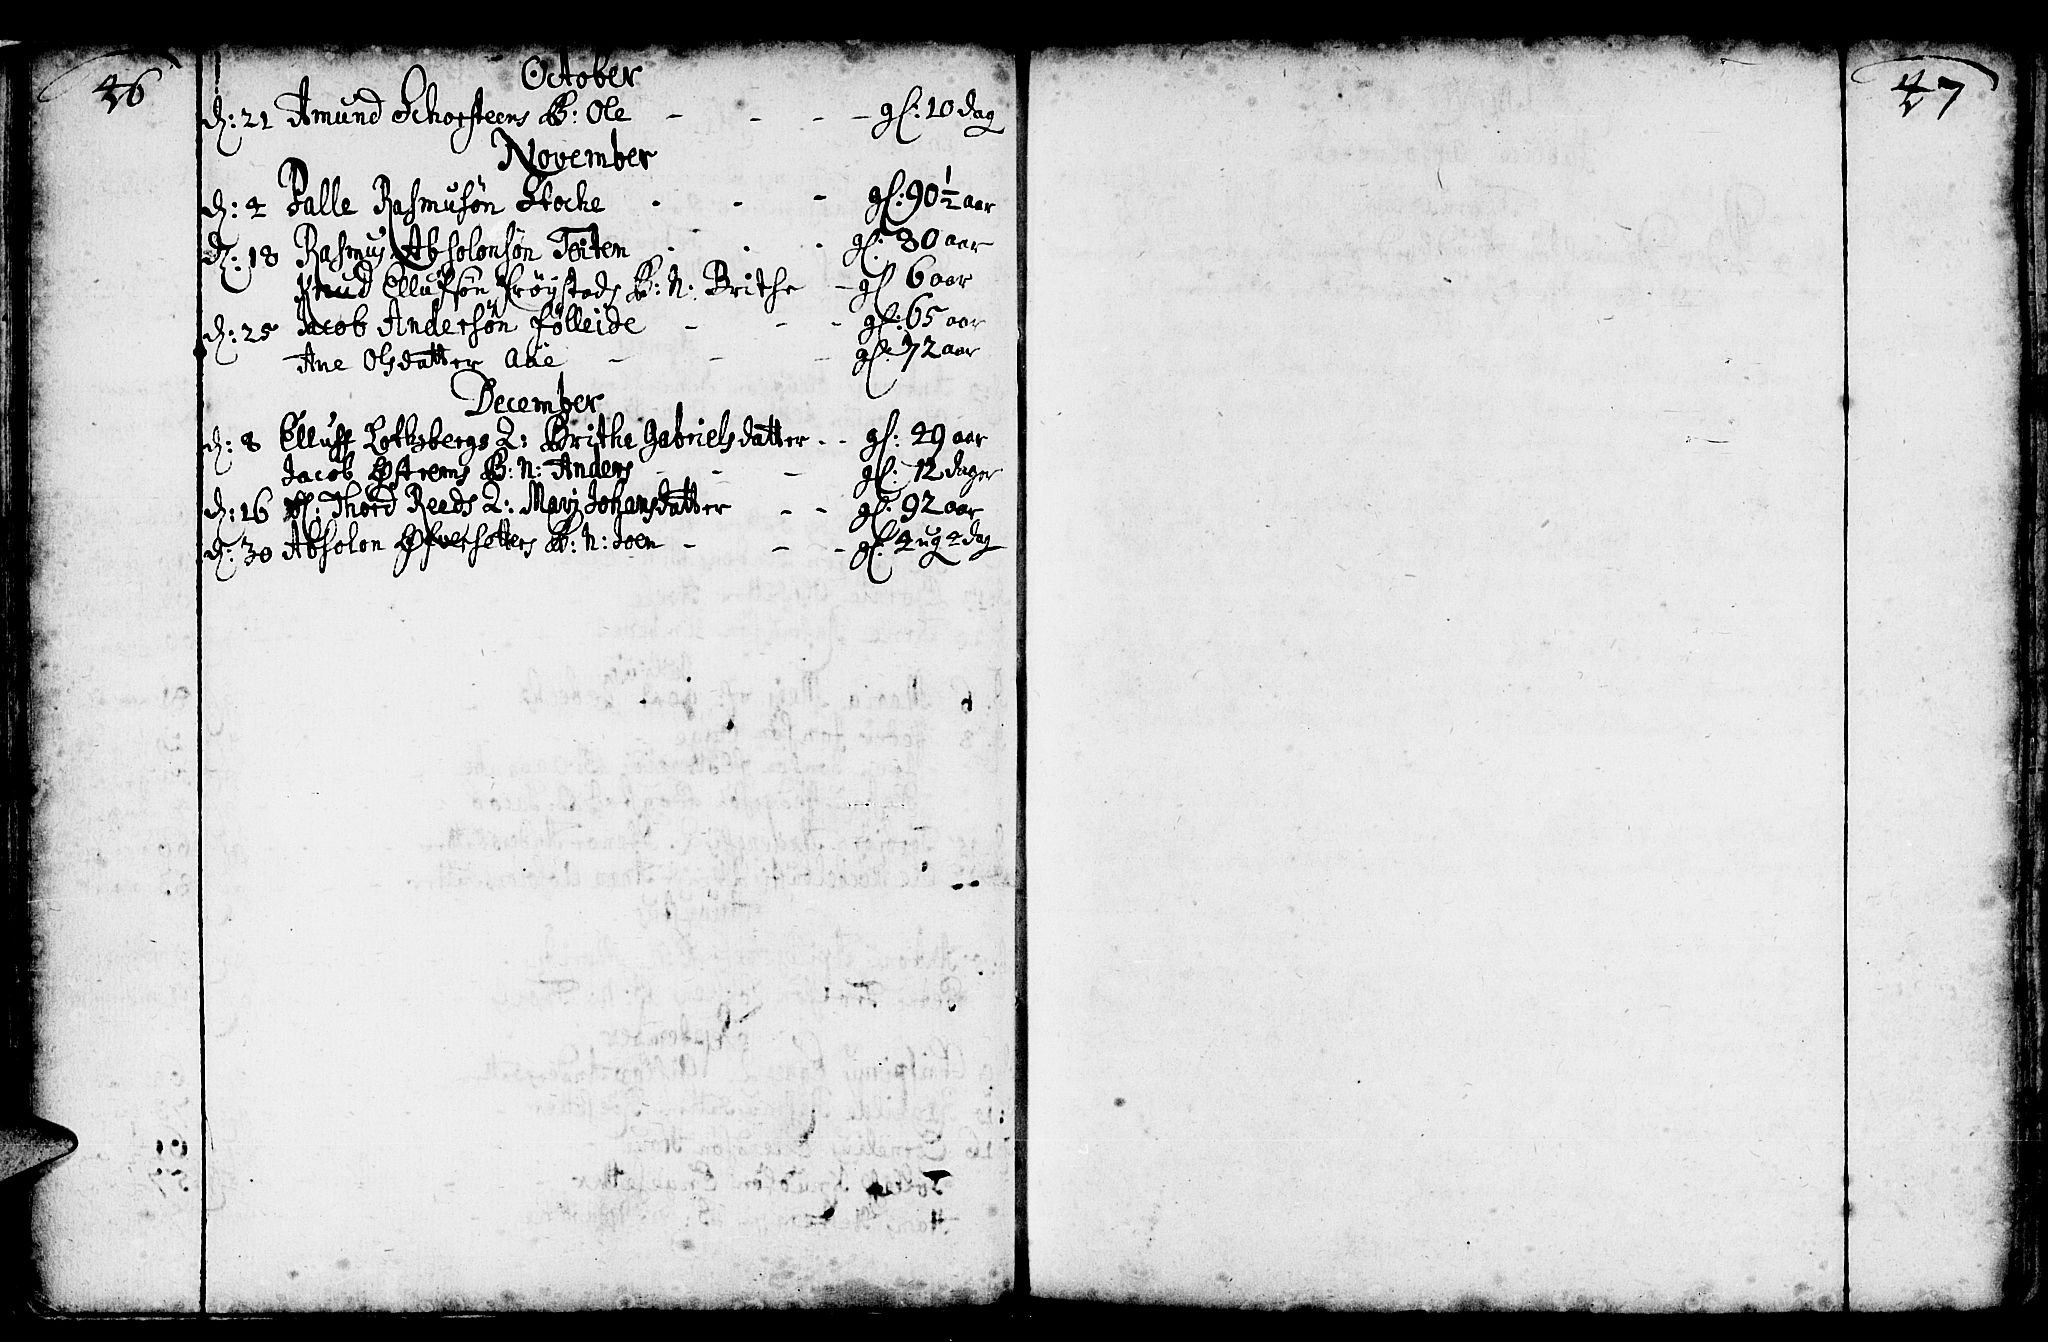 46
October
d: 21 Amund Schorsteens B: Ole - - - - gl: 10 dag
November
d: 4 Palle Rasmusøn Stocke - - - gl: 90 1/2 aar
d: 18 Rasmus Absolonsøn Toiten - - - gl: 80 aar
Knud Ellufsøn Frøystads B: N: Brithe - gl 6 aar
d: 25 Jacob Andersøn Følleide - - - gl: 65 aar
Ane Olsdatter Aae - - - gl: 72 aar
December
d: 8 Elluff Lothsbergs Q: Brithe Gabrielsdatter - - gl: 49 aar
Jacob Østrems B: N: Anders - - - gl: 12 dager
d: 16 Thord Reeds Q: Marj Johansdatter - - gl: 92 aar
d: 30 Absolon Øfversetters B: N: Joen - - - gl: 4 ug 4 dag
47